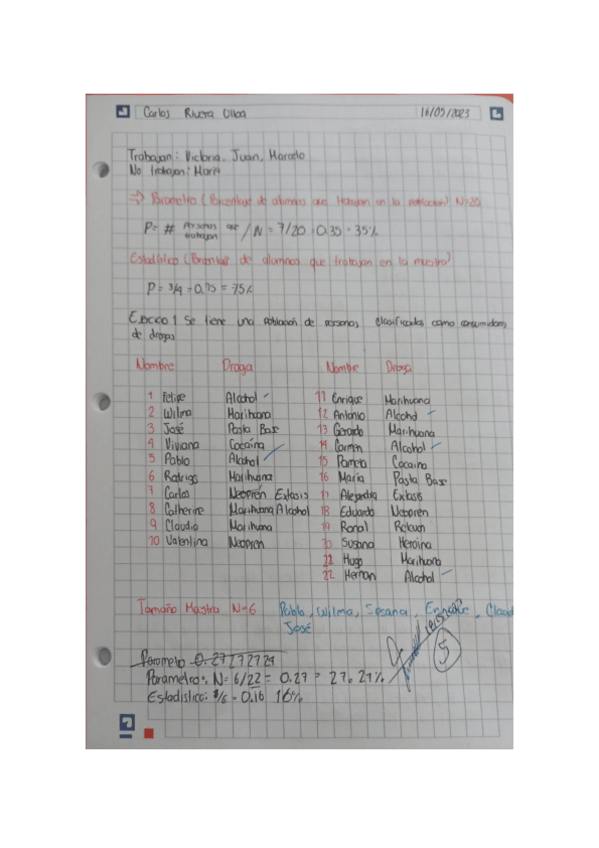 Carlos Rivera Ulloa 16/05/2023
Trabajan: Victoria, Juan, Marcelo
No trabajan: María
=> Parametro (Porcentaje de alumnos que trabajan en la poblacion) N=20
P= # Personas que trabajan / N = 7/20 = 0.35 = 35%
Estadístico (Porcentaje de alumnos que trabajan en la muestra)
P = 3/4 = 0.75 = 75%
1 Se tiene una población de personas, clasificadas como consumidores
de drogas
Nombre Droga Nombre Droga
1 Felipe Alcohol 11 Enrique Marihuana
2 Wilma Marihuana 12 Antonio Alcohol
3 José Pasta Base 13 Gerardo Marihuana
4 Viviana Cocaína 14 Carmen Alcohol
5 Pablo Alcohol 15 Pamela Cocaina
6 Rodrigo Marihuana 16 María Pasta Base
7 Carlos Neoprén Extasis 17 Alejandra Extasis
8 Catherine Marihuana Alcohol 18 Eduardo Neoprén
9 Claudio Marihuana 19 Ronal
10 Valentina Neoprén 20 Susana Heroína
22 Hugo Marihuana
22 Hernan Alcohol
Tamaño Mastra N=6 Pablo, Wilma, Susana, Enrique, Claud
José
Parametro 0.27272729
Parametro: N= 6/22 = 0.27 = 27.27%
Estadístico: 1/6 = 0.16 16%
5